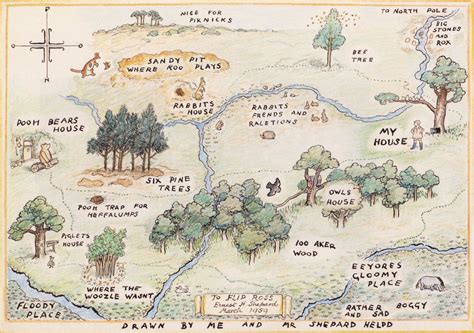 NICE FOR
PIKNICKS
TO NORTH POLE
BIG
STONES
AND
ROX
SANDY PIT
WHERE ROO PLAYS
BEE
TREE
RABBITS
HOUSE
RABBITS
FRENDS AND
RALETIONS
POOH BEARS
HOUSE
MY
HOUSE
SIX PINE
TREES
POOH TRAP FOR
HEFFALUMPS
OWLS
HOUSE
PIGLETS
HOUSE
100 AKER
WOOD
WHERE THE
WOOZLE WASNT
EEYORES
GLOOMY
PLACE
FLOODY
PLACE
TO FLIP ROSS
Ernest H. Shepard
March 1959
RATHER BOGGY
AND SAD
DRAWN BY ME AND MR SHEPARD HELPD